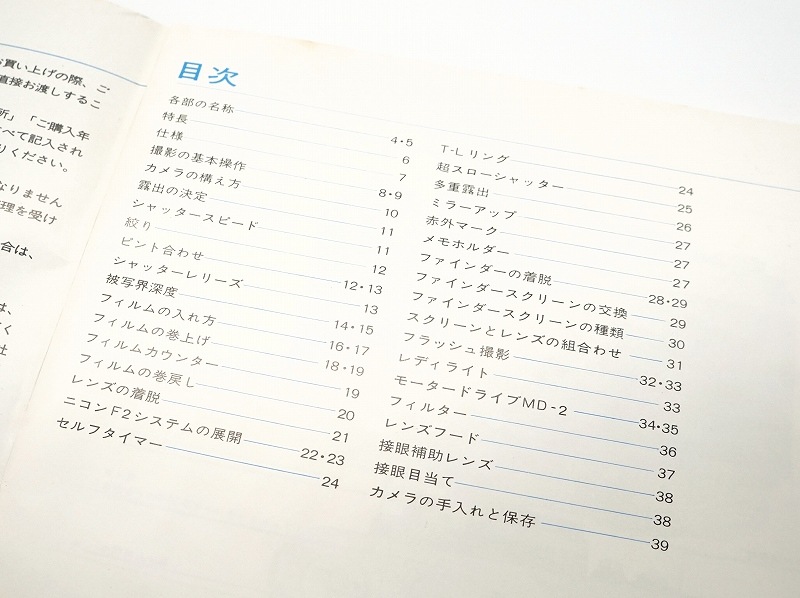 お買い上げの際、ご
直接お渡しするこ
所」「ご購入年
べて記入され
りください。
なりません
理を受け
合は、
は、
く
社
目次
各部の名称 4・5
特長 6
仕様 7
撮影の基本操作 8・9
カメラの構え方 10
露出の決定 11
シャッタースピード 11
絞り 12
ピント合わせ 12・13
シャッターレリーズ 13
被写界深度 14・15
フィルムの入れ方 16・17
フィルムの巻上げ 18・19
フィルムカウンター 19
フィルムの巻戻し 20
レンズの着脱 21
ニコンF2システムの展開 22・23
セルフタイマー 24
T-Lリング 24
超スローシャッター 25
多重露出 26
ミラーアップ 27
赤外マーク 27
メモホルダー 27
ファインダーの着脱 28・29
ファインダースクリーンの交換 29
ファインダースクリーンの種類 30
スクリーンとレンズの組合わせ 31
フラッシュ撮影 32・33
レディライト 33
モータードライブMD-2 34・35
フィルター 36
レンズフード 37
接眼補助レンズ 38
接眼目当て 38
カメラの手入れと保存 39